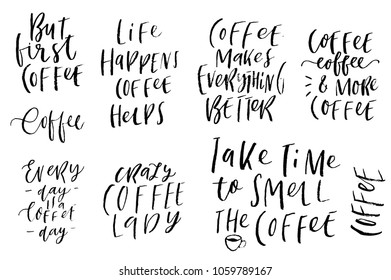 But
first
COFFEE
Coffee
Life
HAPPENS
COFFEE
HELPS
COFFEE
MAKES
EVERYTHING
BETTER
COFFEE
coffee
& MORE
COFFEE
EVERY
- day -
is a
COFFEE
- day -
CRAZY
COFFEE
LADY
TAKE TIME
to SMELL
THE COFFEE
COFFEE
shutterstock
IMAGE ID: 1059789167
www.shutterstock.com